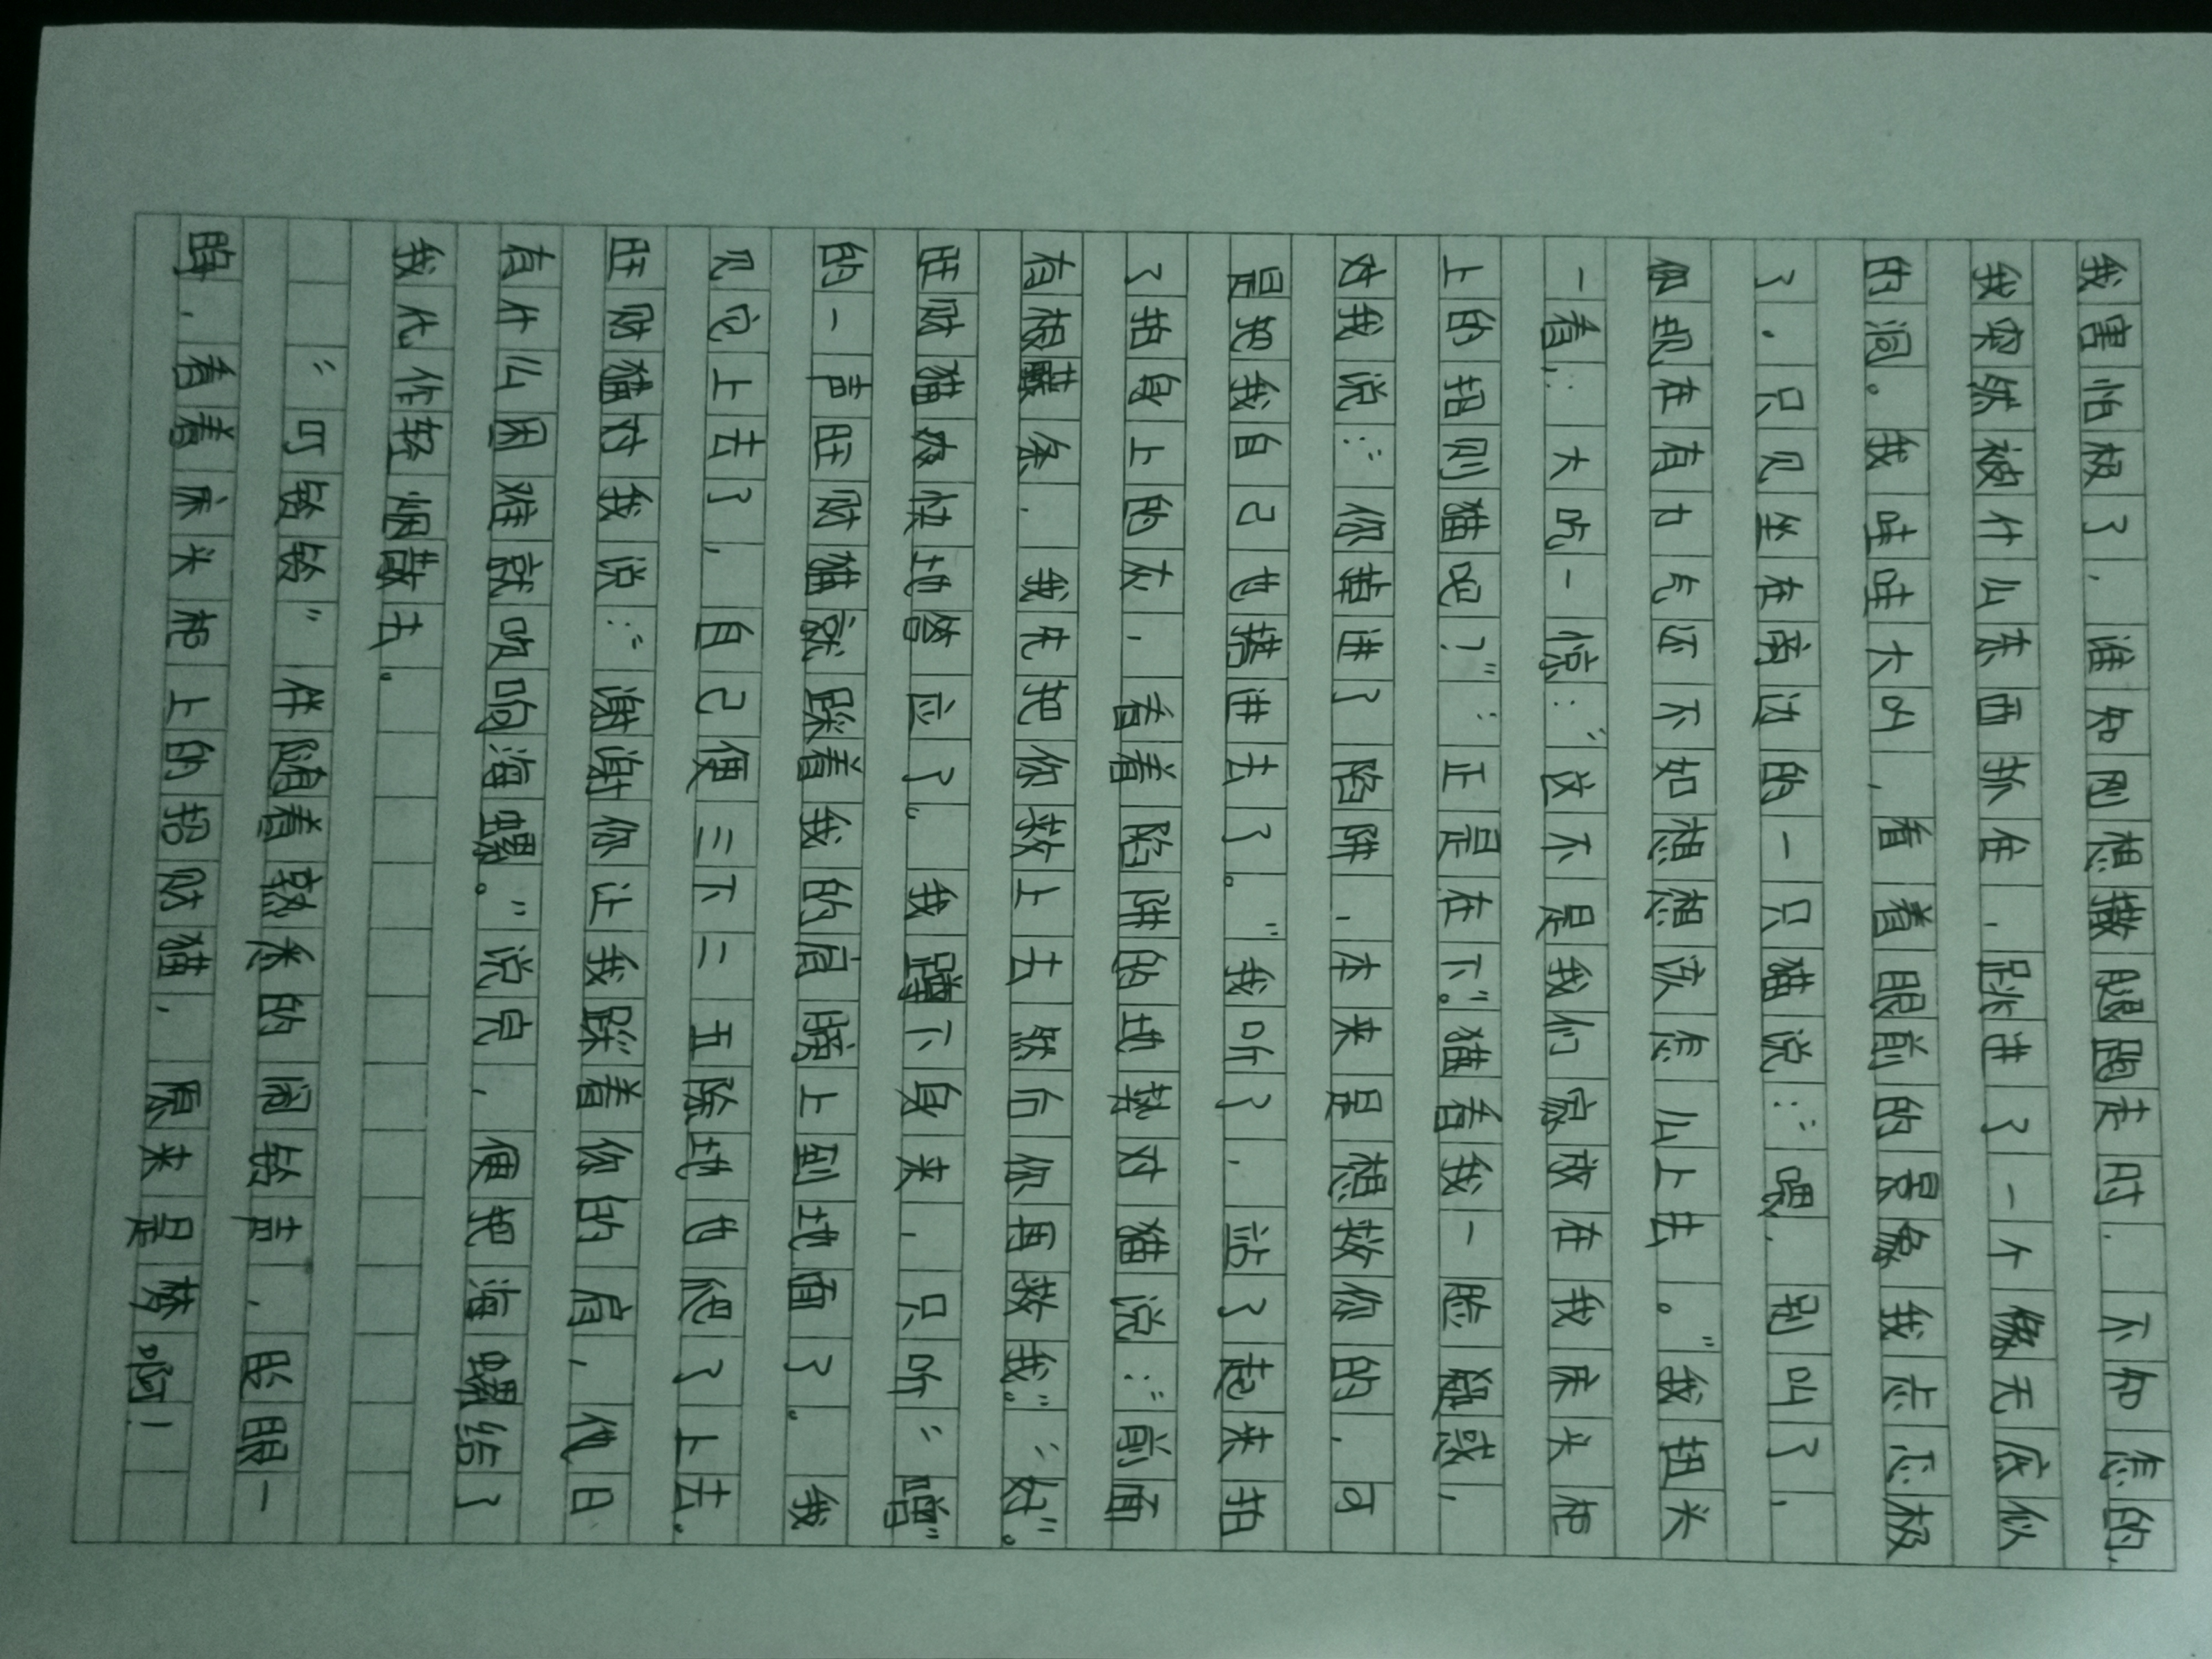 我害怕极了，谁知刚想撒腿跑走时，不知怎的，
我突然被什么东西抓住，跳进了一个像无底似
的洞。我哇哇大叫，看着眼前的景象我忐忑极
了，只见坐在旁边的一只猫说：“喂，别叫了，
你现在有力气还不如想想该怎么上去。”我扭头
一看，：大吃一惊：“这不是我们家放在我床头柜
上的招财猫吧？”“正是在下。”猫看我一脸疑惑，
对我说：“你掉进了陷阱，本来是想救你的，可
是把我自己也搭进去了。”我听了，站了起来拍
了拍身上的灰，看着陷阱的地势对猫说：“前面
有根藤条，我先把你救上去然后你再救我。”“好”。
旺财猫爽快地答应了。我蹲下身来，只听“噌”
的一声旺财猫就踩着我的肩膀上到地面了。我
见它上去了，自己便三下二五除地也爬了上去。
旺财猫对我说：“谢谢你让我踩着你的肩，他日
有什么困难就吹响海螺。”说完，便把海螺给了
我化作轻烟散去。
“叮铃铃”伴随着熟悉的闹铃声，胀眼一
睁，看着床头柜上的招财猫，原来是梦啊！